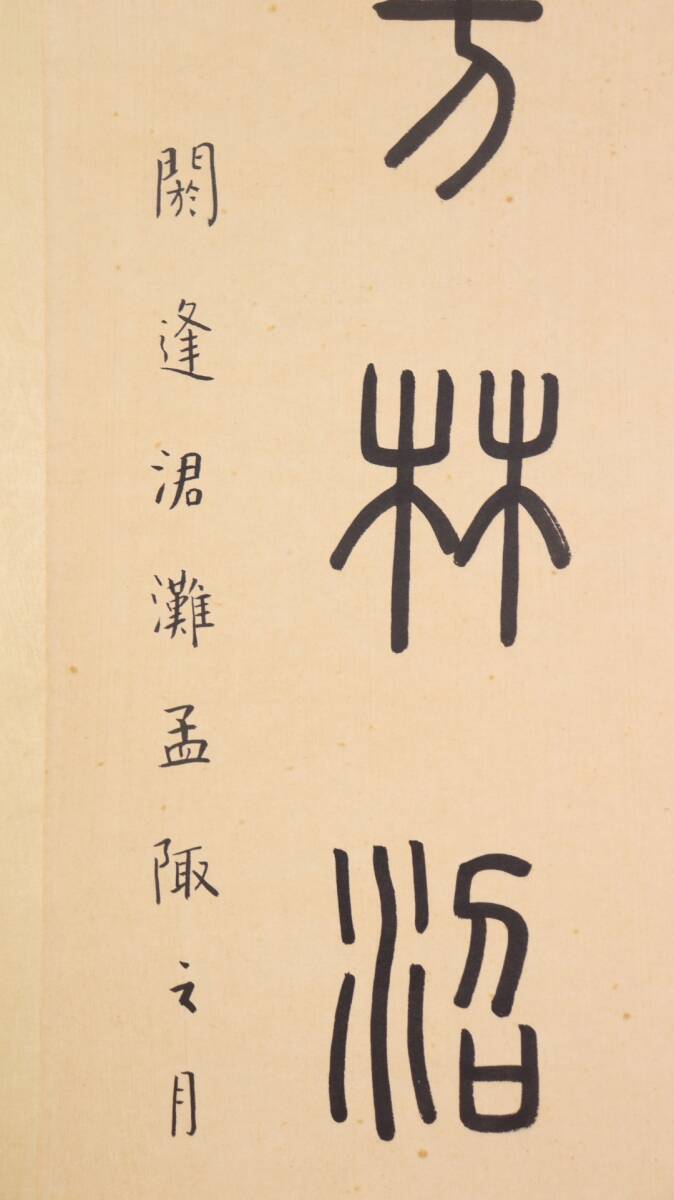 林沼
閼逢涒灘孟陬之月